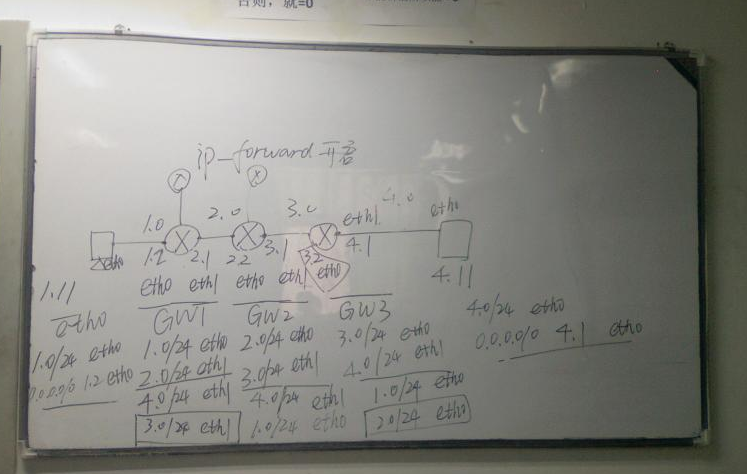 否则，就=0
ip_forward 开启
1.0 2.0 3.0 4.0
eth1 eth0
eth0 1.2 2.1 2.2 3.1 3.2 4.1 4.11
1.11 eth0 eth1 eth0 eth1 eth0
eth0 GW1 GW2 GW3
1.0/24 eth0
0.0.0.0/0 1.2 eth0
1.0/24 eth0
2.0/24 eth1
4.0/24 eth1
3.0/24 eth1
2.0/24 eth0
3.0/24 eth1
4.0/24 eth1
1.0/24 eth0
3.0/24 eth0
4.0/24 eth1
1.0/24 eth0
2.0/24 eth0
4.0/24 eth0
0.0.0.0/0 4.1 eth0